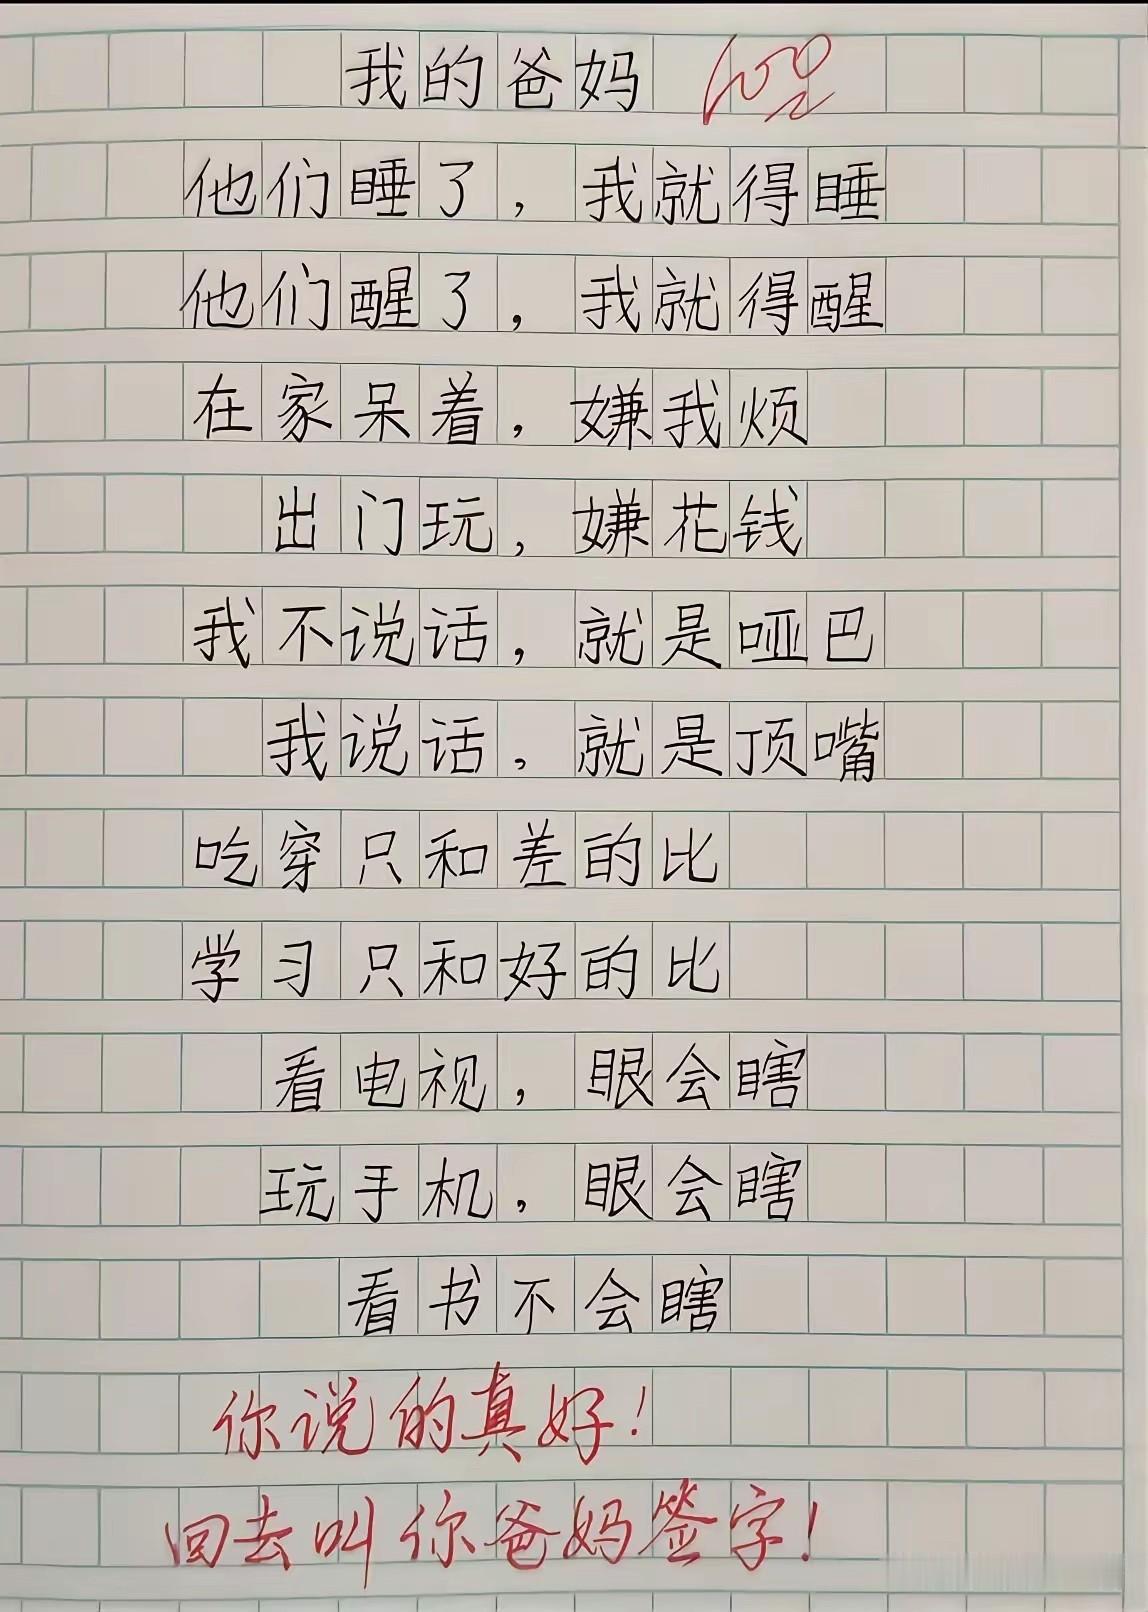 我的爸妈 100
他们睡了，我就得睡
他们醒了，我就得醒
在家呆着，嫌我烦
出门玩，嫌花钱
我不说话，就是哑巴
我说话，就是顶嘴
吃穿只和差的比
学习只和好的比
看电视，眼会瞎
玩手机，眼会瞎
看书不会瞎
你说的真好！
回去叫你爸妈签字！